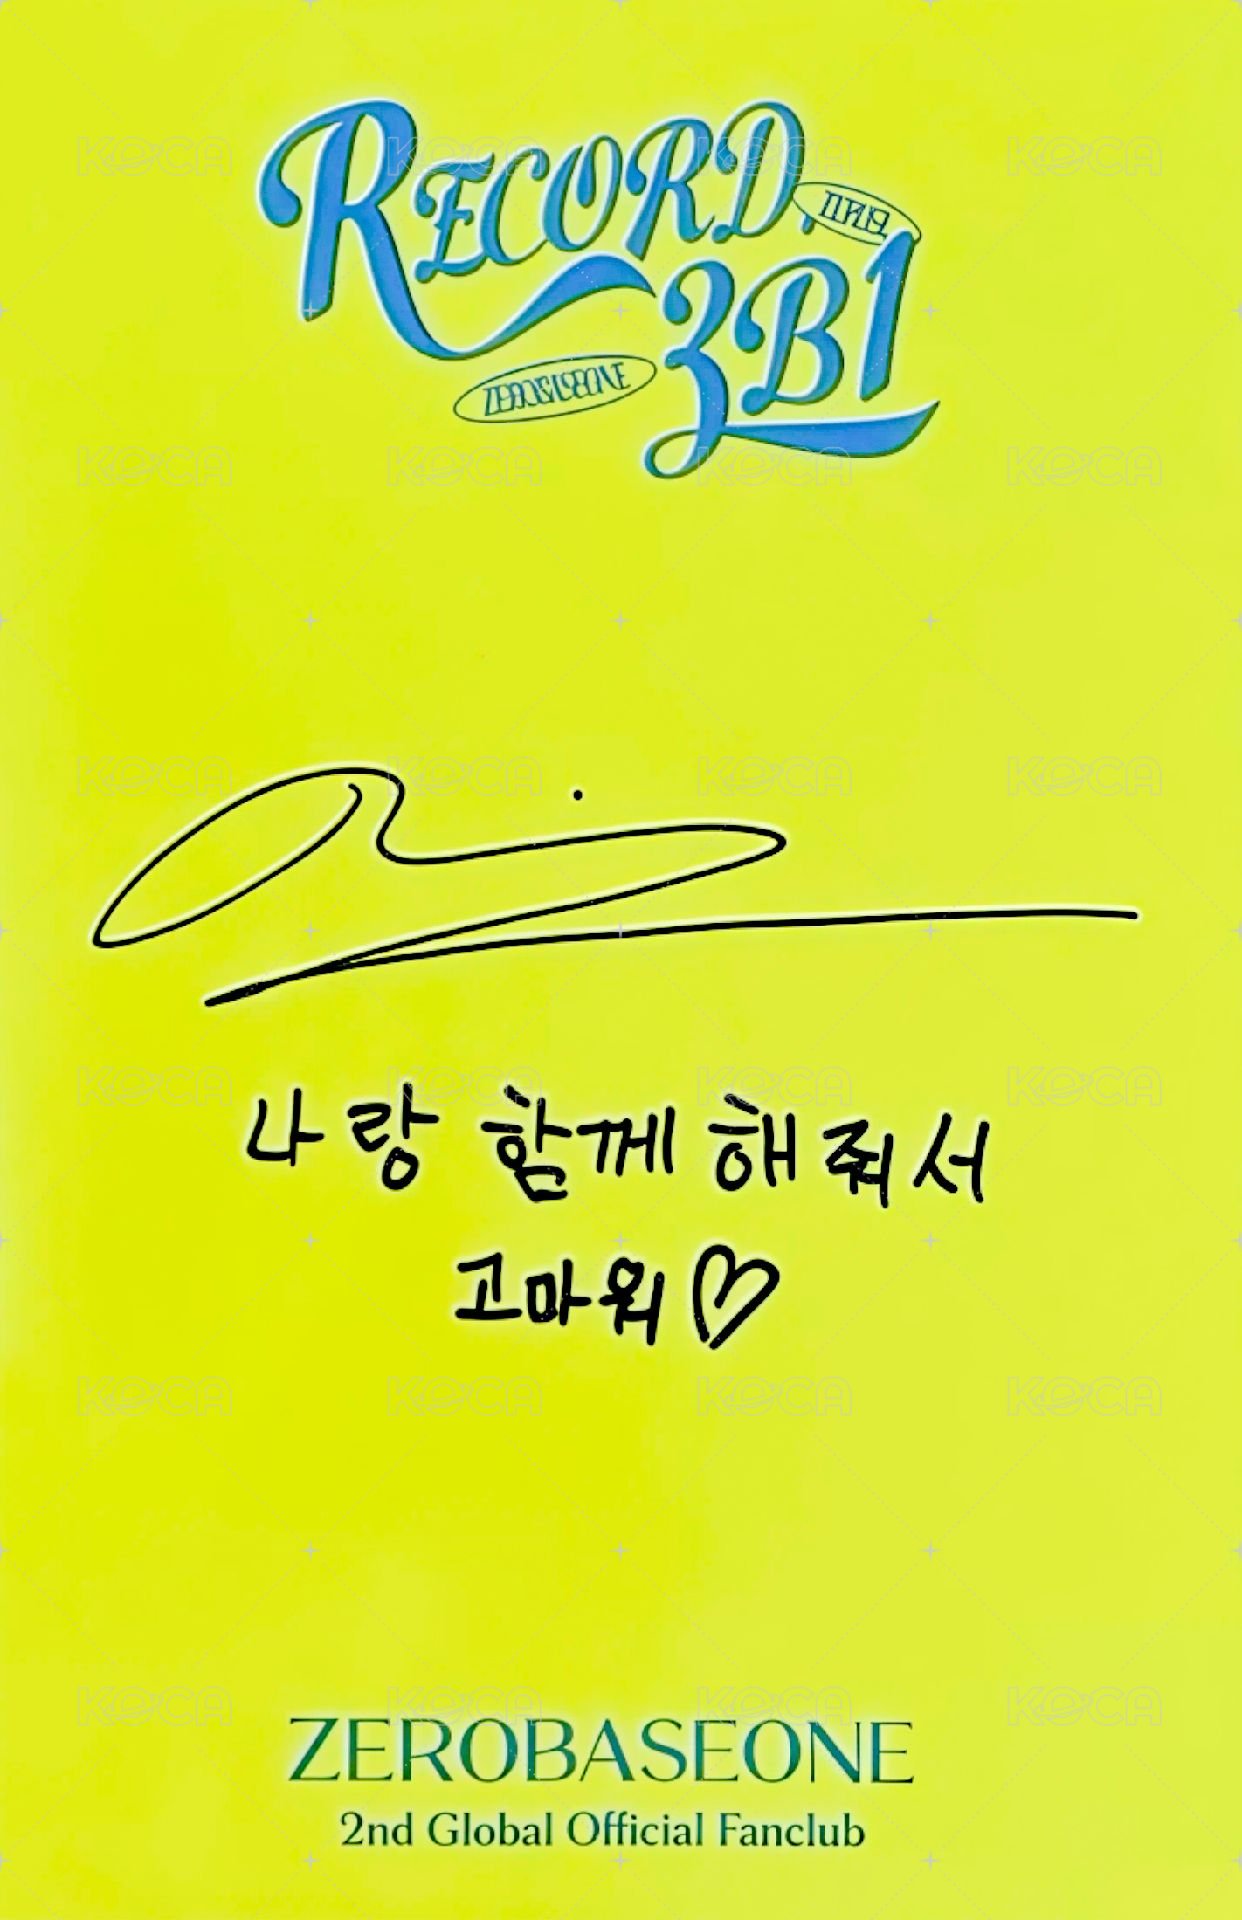 RECORD,
ZB1
ZEROBASEONE
나랑 함께 해줘서
고마워♡
ZEROBASEONE
2nd Global Official Fanclub
KOCA